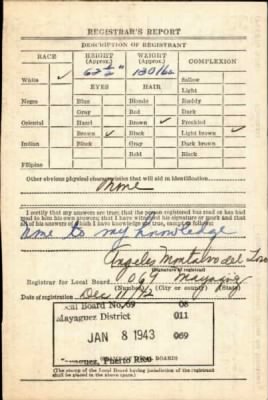 REGISTRAR'S REPORT
DESCRIPTION OF REGISTRANT
RACE HEIGHT (Approx.) WEIGHT (Approx.) COMPLEXION
White ✓ 62½" 130 lbs. Sallow
EYES HAIR Light
Negro Blue Blonde Ruddy
Gray Red Dark
Oriental Hazel Brown ✓ Freckled
Brown ✓ Black Light brown ✓
Indian Black Gray Dark brown
Bald Black
Filipino
Other obvious physical characteristics that will aid in identification
None
I certify that my answers are true; that the person registered has read or has had
read to him his own answers; that I have witnessed his signature or mark and that
all of his answers of which I have knowledge are true, except as follows:
to my knowledge
Angeles Montalvo del
(Signature of registrar)
Registrar for Local Board 069 Mayaguez
(Number) (City or county) (State)
Date of registration Dec
cal Board No. 69 08
Mayaguez District 011
JAN 8 1943 069
Puerto Rico
(The stamp of the Local Board having jurisdiction of the registrant
shall be placed in the above space.)